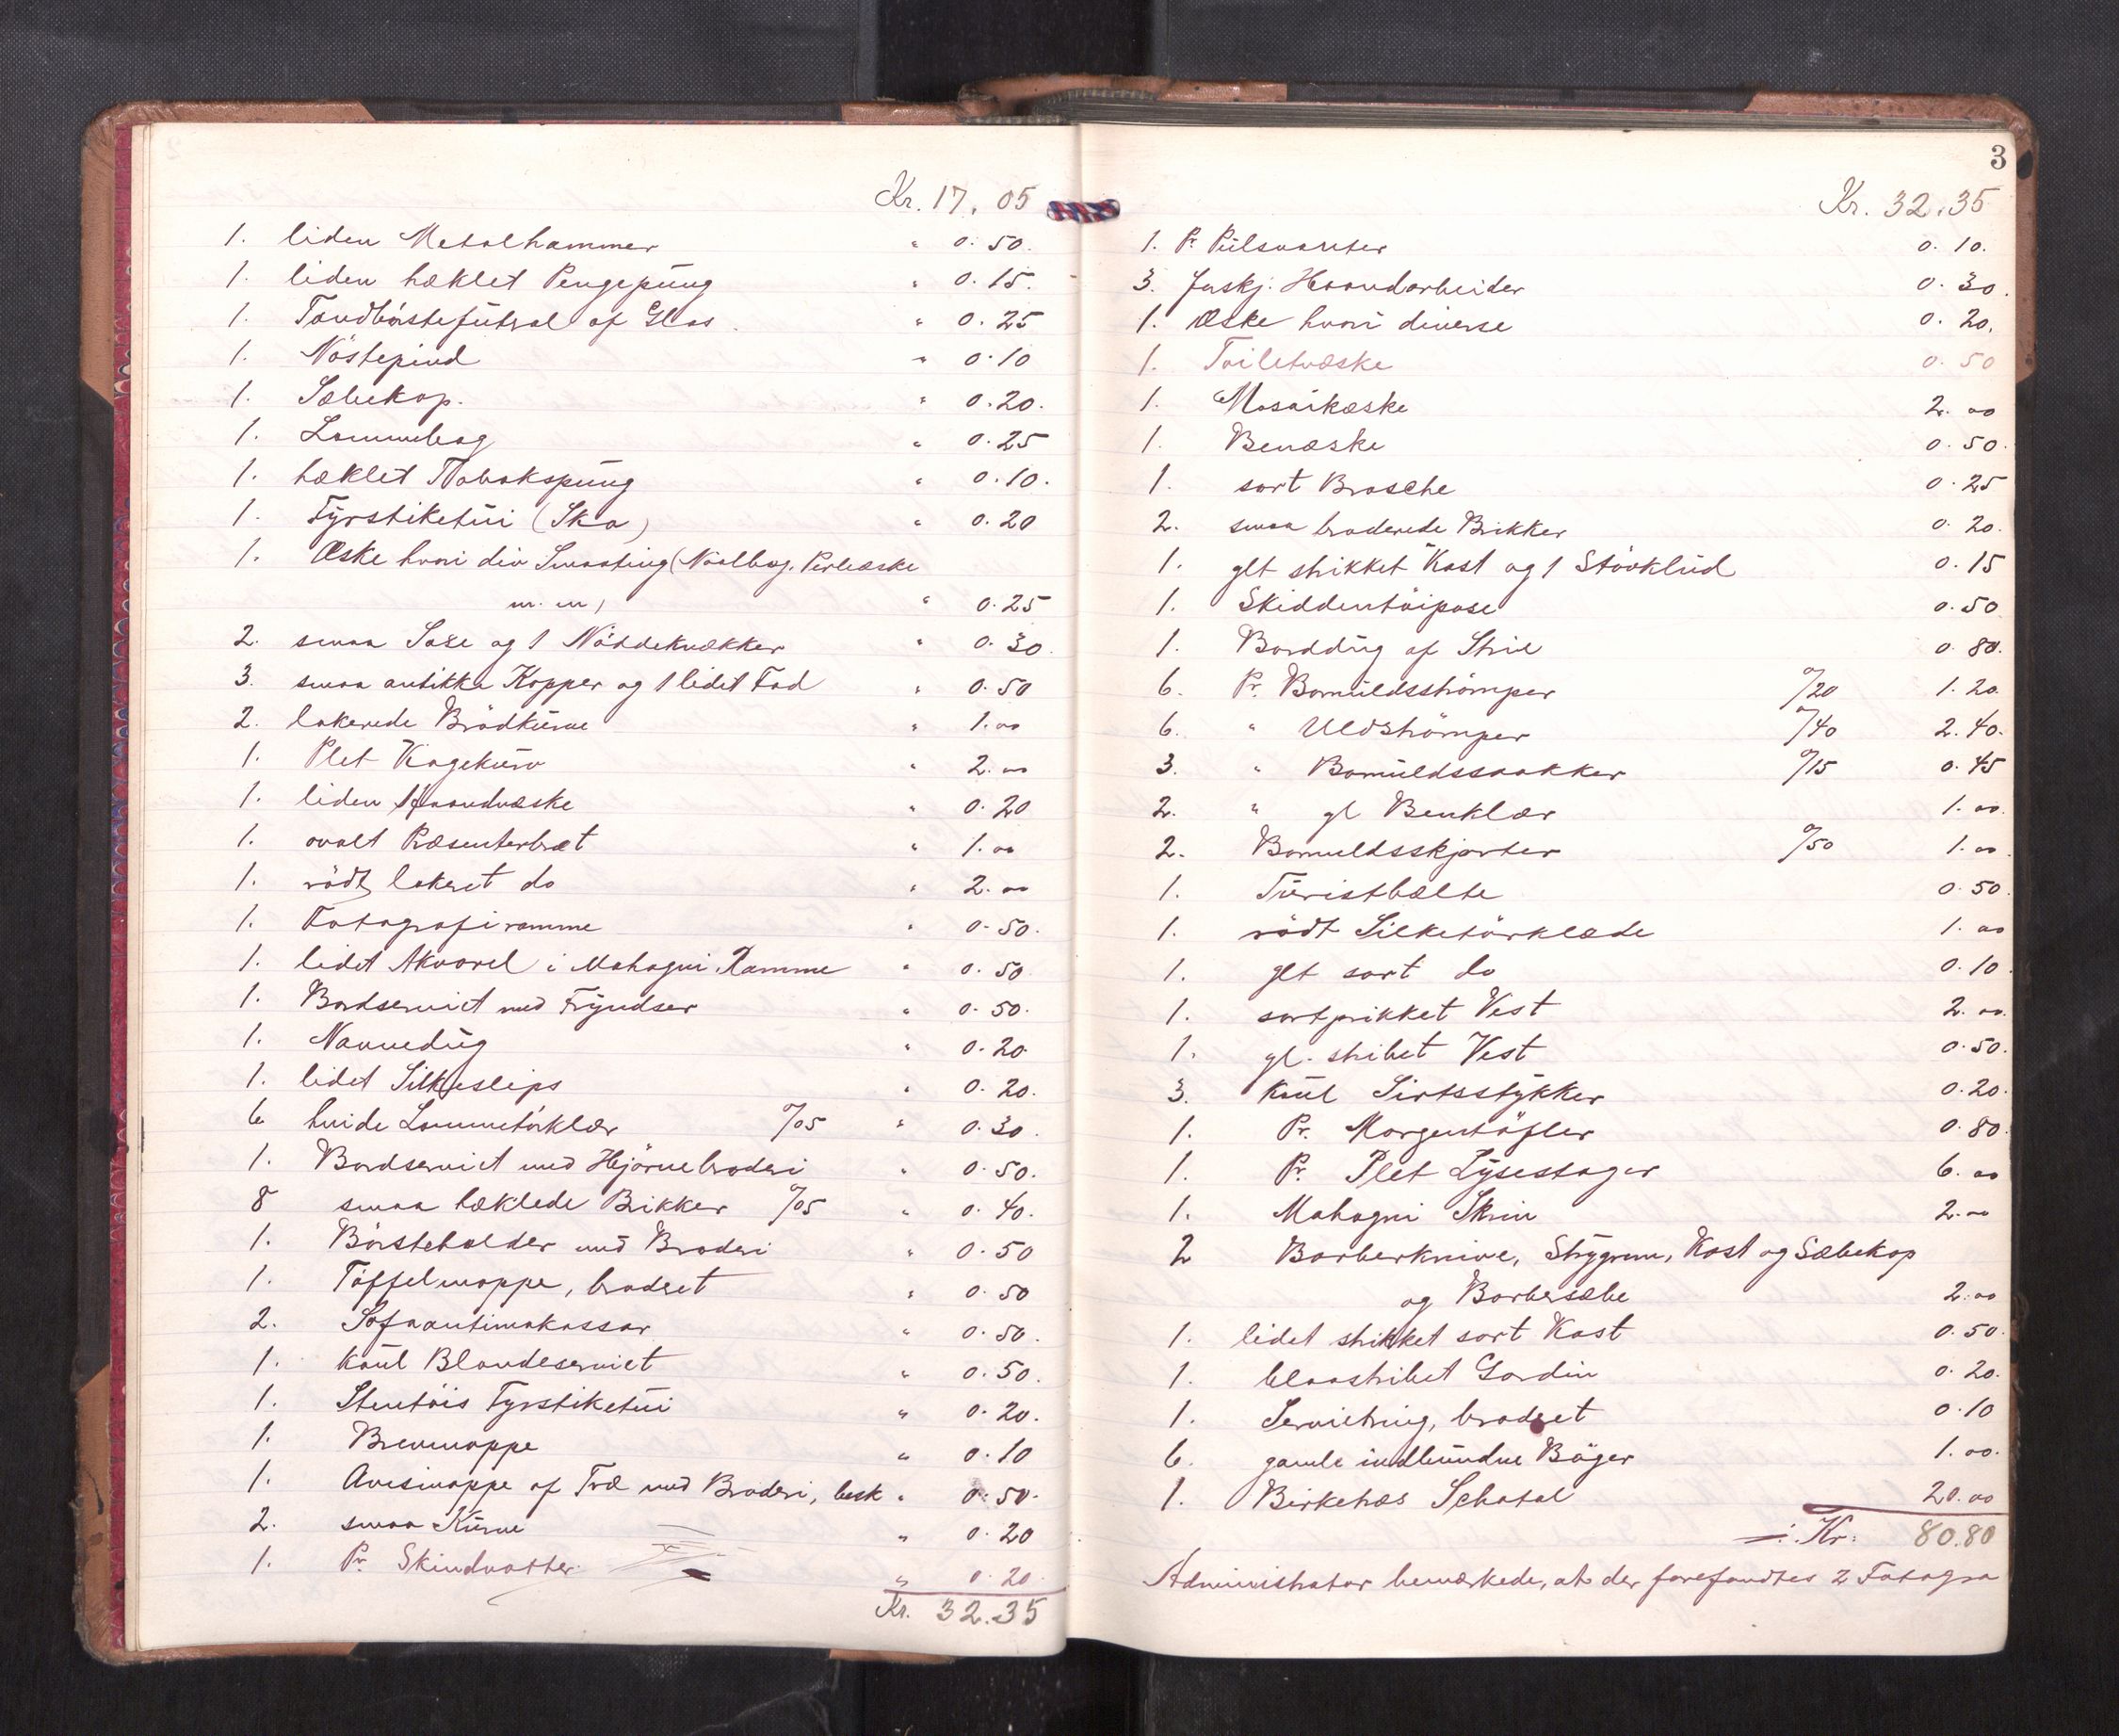 Kr. 17. 05
1. liden Metalhammer " 0. 50.
1. liden hæklet Pengepung " 0. 15.
1. Tandbørstefutral af Glas. " 0. 25
1. Nøstepind " 0. 10
1. Sæbekop. " 0. 20.
1. Lommebog " 0. 25
1. hæklet Tobakspung " 0. 10.
1. Fyrstiketui (Sko) " 0. 20
1. Æske hvori div Smaating (Naalbog. Perleæske
m. m) " 0. 25
2. smaa Saxe og 1 Nøddeknækker " 0. 30.
3. smaa antikke Kopper og 1 lidet Fad " 0. 50
2. lakerede Brødkurve " 1. 00
1. Plet Kagekurv " 2. 00
1. liden Haandvæske " 0. 20
1. ovalt Præsenterbræt " 1. 00
1. rødt lakeret do " 2. 00
1. Fotografiramme " 0. 50.
1. lidet Akvarel i Mahogni Ramme " 0. 50
1. Bordserviet med Fryndser " 0. 50.
1. Navnedug " 0. 20
1. lidet Silkeslips " 0. 20.
6 hvide Lommetørklær %05 " 0. 30.
1. Bordserviet med Hjørnebroderi " 0. 50.
8 smaa hæklede Brikker %05 " 0. 40.
1. Børsteholder med Broderi " 0. 50
1. Tøffelmappe, broderet " 0. 50
2. Sofaantimakassar " 0. 50.
1. koul Blondeserviet " 0. 50.
1. Stentøis Fyrstiketui " 0. 20.
1. Brevmappe " 0. 10
1. Avismappe af Træ med Broderi, besk " 0. 50.
2. smaa Kurve " 0. 20
1. Pr. Skindvotter " 0. 20.
Kr. 32. 35
3
Kr. 32. 35
1. Pr Pulsvanter 0. 10.
3. forskj. Haandarbeider 0. 30.
1. Æske hvori diverse 0. 20.
1. Toiletvæske 0. 50
1. Mosaikæske 2. 00
1. Benæske 0. 50.
1. sort Brosche 0. 25
2. smaa broderede Brikker 0. 20.
1. glt strikket Kast og 1 Støvklud 0. 15
1. Skiddentøipose 0. 50
1. Borddug af Strie 0. 80.
6. Pr. Bomuldsstrømper %20 1. 20.
6. " Uldstrømper %40 2. 40.
3. " Bomuldssokker %15 0. 45
2. " gl Benklær 1. 00.
2. Bomuldsskjorter %50 1. 00.
1. Turistbælte 0. 50.
1. rødt Silketørklæde 1. 00
1. glt sort do 0. 10.
1. sortprikket Vest 2. 00.
1. gl. stribet Vest 0. 50.
3. koul Sirtsstykker 0. 20.
1. Pr. Morgentøfler 0. 80.
1. Pr. Plet Lysestager 6. 00
1. Mahogni Skrin 2. 00
2 Barberknive, Strygrem, Kost og Sæbekop
og Barbersæbe 2. 00
1. lidet strikket sort Kast 0. 50.
1. blaastribet Gardin 0. 20.
1. Servietring, broderet 0. 10
6. gamle indbundne Bøger 1. 00.
1. Birketræs Schatol 20. 00
÷ Kr. 80.80
Administrator bemærkede, at der forefandtes 2 Fotogra